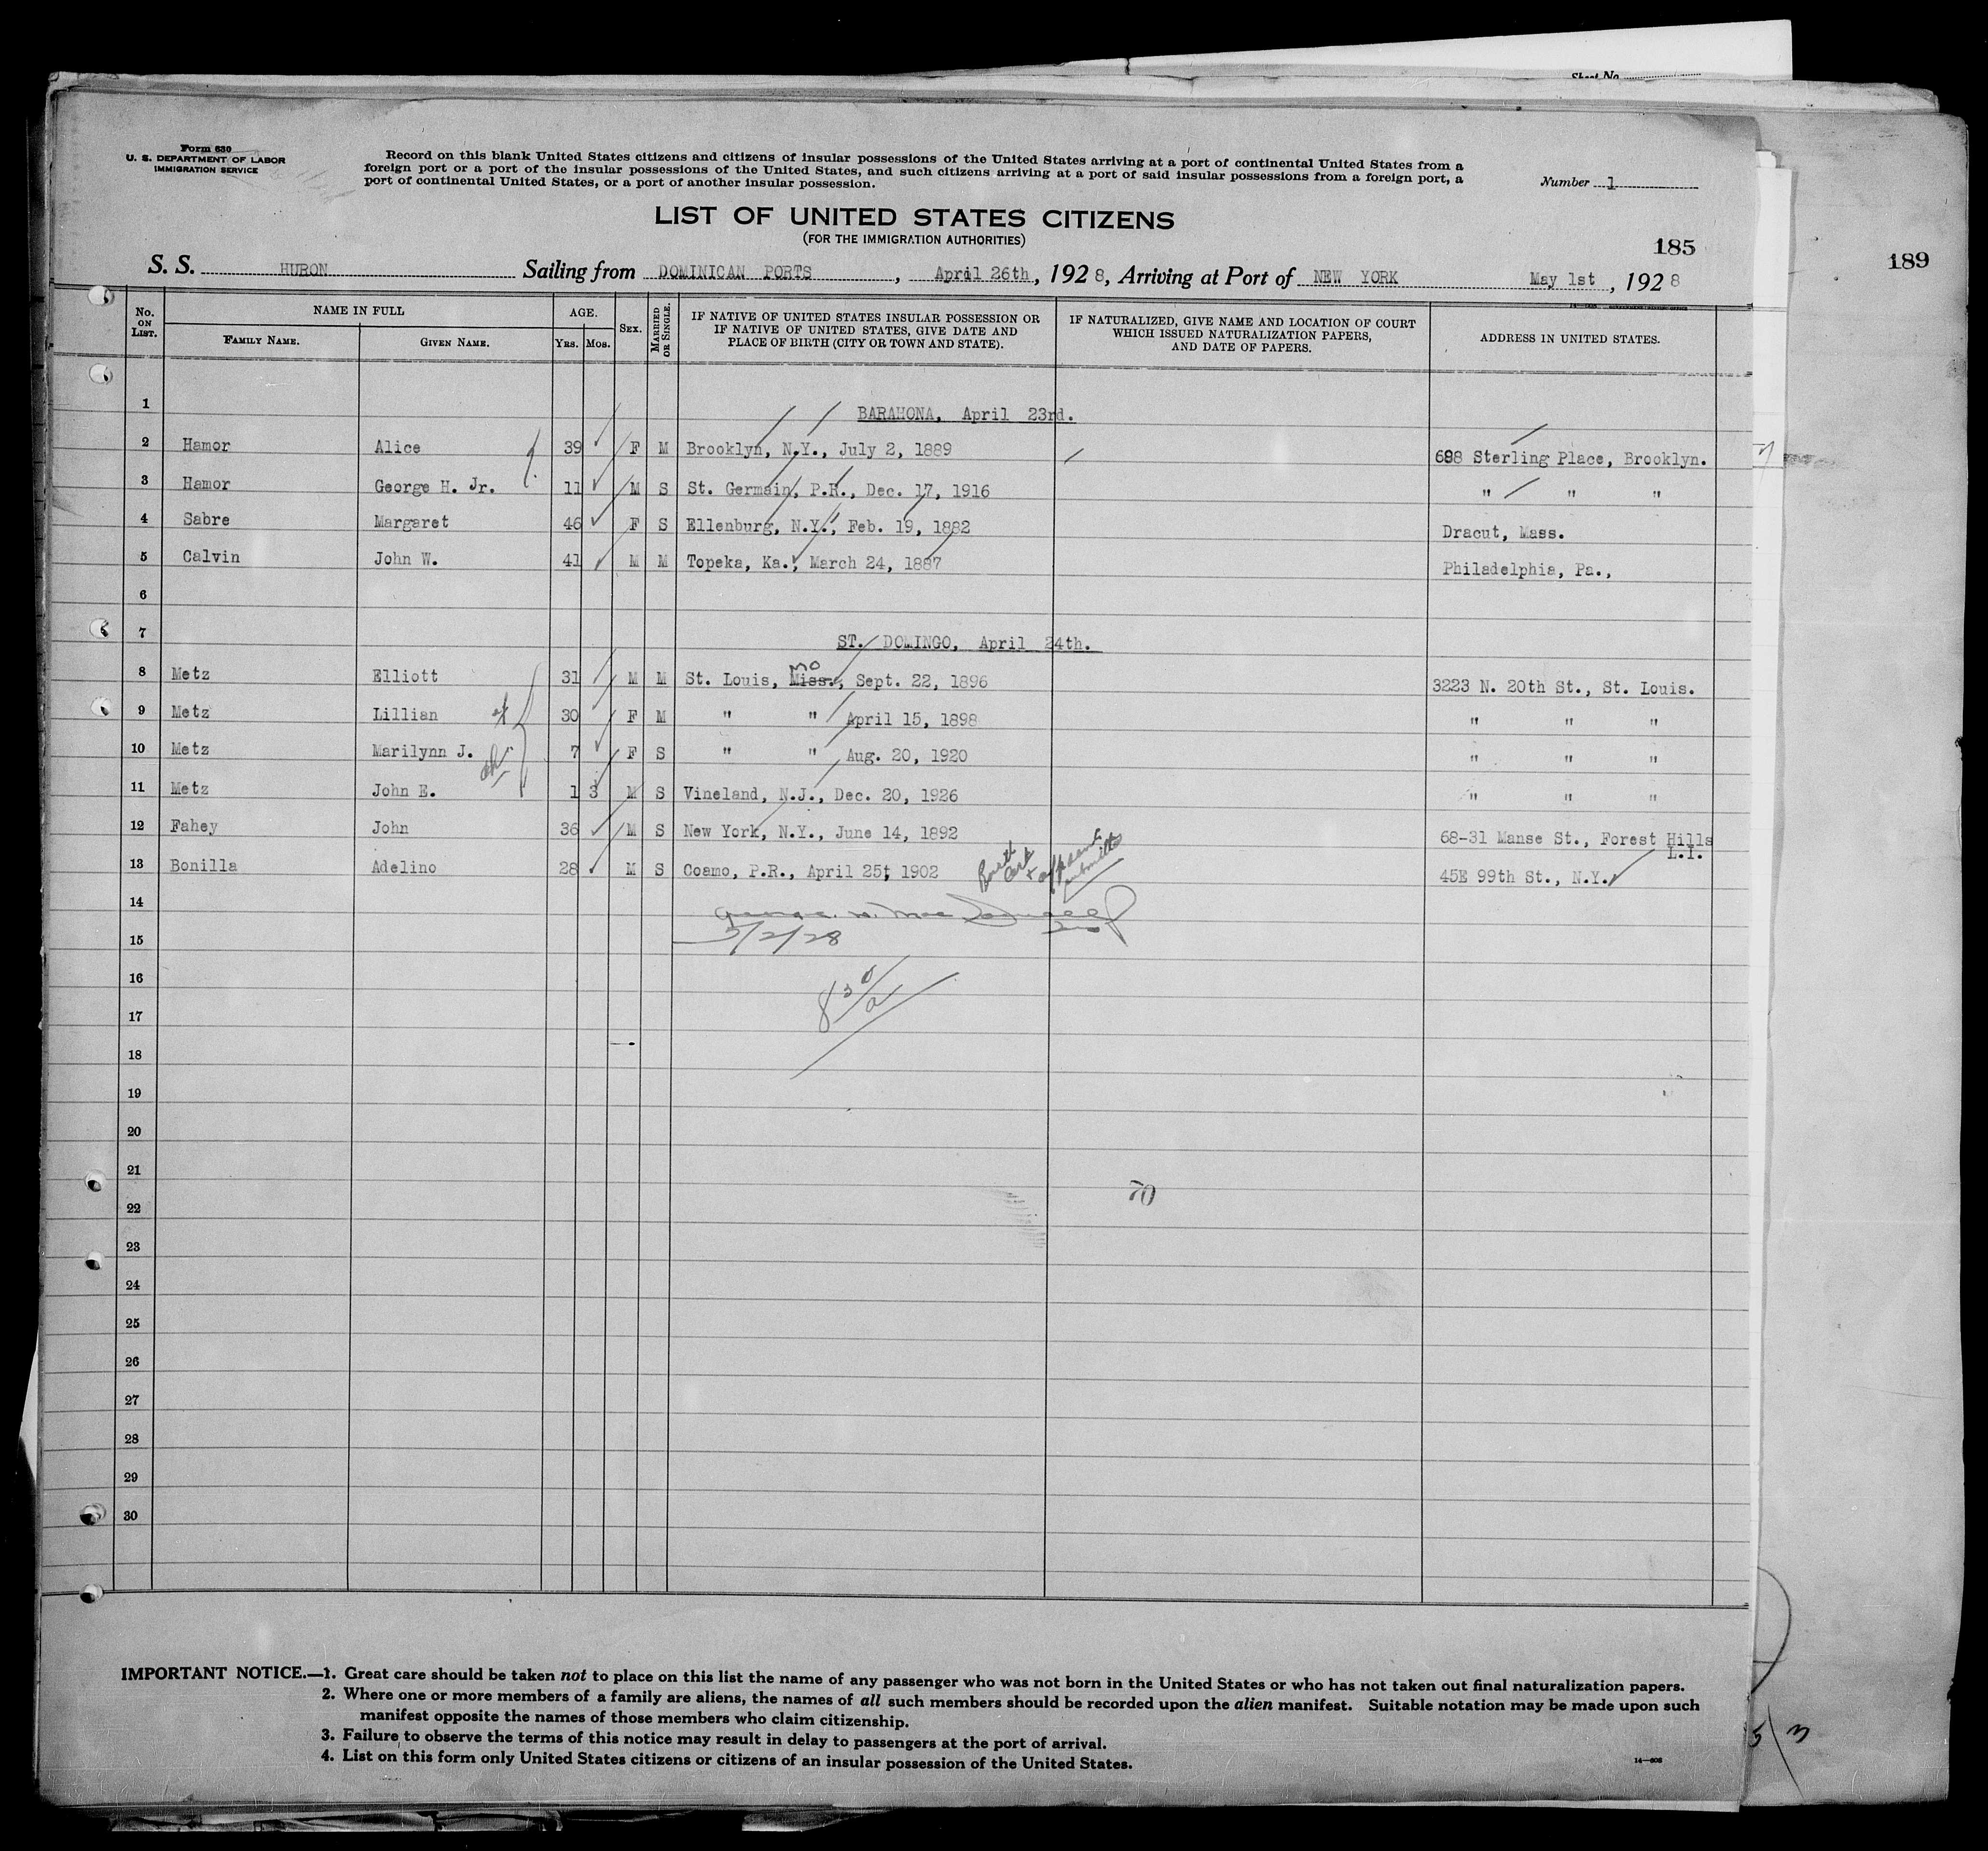 Sheet No.
Form 630
U. S. DEPARTMENT OF LABOR
IMMIGRATION SERVICE
Record on this blank United States citizens and citizens of insular possessions of the United States arriving at a port of continental United States from a
foreign port or a port of the insular possessions of the United States, and such citizens arriving at a port of said insular possessions from a foreign port, a
port of continental United States, or a port of another insular possession.
Number 1
LIST OF UNITED STATES CITIZENS
(FOR THE IMMIGRATION AUTHORITIES)
185
189
S. S. HURON Sailing from DOMINICAN PORTS, April 26th, 1928, Arriving at Port of NEW YORK May 1st, 1928
No. ON LIST. NAME IN FULL FAMILY NAME. GIVEN NAME. AGE. YRS. MOS. SEX. MARRIED OR SINGLE. IF NATIVE OF UNITED STATES INSULAR POSSESSION OR IF NATIVE OF UNITED STATES, GIVE DATE AND PLACE OF BIRTH (CITY OR TOWN AND STATE). IF NATURALIZED, GIVE NAME AND LOCATION OF COURT WHICH ISSUED NATURALIZATION PAPERS, AND DATE OF PAPERS. ADDRESS IN UNITED STATES.
1 BARAHONA, April 23rd.
2 Hamor Alice 39 F M Brooklyn, N.Y., July 2, 1889 688 Sterling Place, Brooklyn.
3 Hamor George H. Jr. 11 M S St. Germain, P.R., Dec. 17, 1916 " " "
4 Sabre Margaret 46 F S Ellenburg, N.Y., Feb. 19, 1882 Dracut, Mass.
5 Calvin John W. 41 M M Topeka, Ka., March 24, 1887 Philadelphia, Pa.,
6
7 ST. DOMINGO, April 24th.
mo
8 Metz Elliott 31 M M St. Louis, Miss., Sept. 22, 1896 3223 N. 20th St., St. Louis.
9 Metz Lillian 30 F M " " April 15, 1898 " " "
10 Metz Marilynn J. 7 F S " " Aug. 20, 1920 " " "
11 Metz John E. 1 3 M S Vineland, N.J., Dec. 20, 1926 " " "
12 Fahey John 36 M S New York, N.Y., June 14, 1892 68-31 Manse St., Forest Hills
L.I.
13 Bonilla Adelino 28 M S Coamo, P.R., April 25, 1902 45E 99th St., N.Y.
14
15 5/2/28
16 830/a
17
18
19
20
21
22 70
23
24
25
26
27
28
29
30
IMPORTANT NOTICE.—1. Great care should be taken not to place on this list the name of any passenger who was not born in the United States or who has not taken out final naturalization papers.
2. Where one or more members of a family are aliens, the names of all such members should be recorded upon the alien manifest. Suitable notation may be made upon such
manifest opposite the names of those members who claim citizenship.
3. Failure to observe the terms of this notice may result in delay to passengers at the port of arrival.
4. List on this form only United States citizens or citizens of an insular possession of the United States.